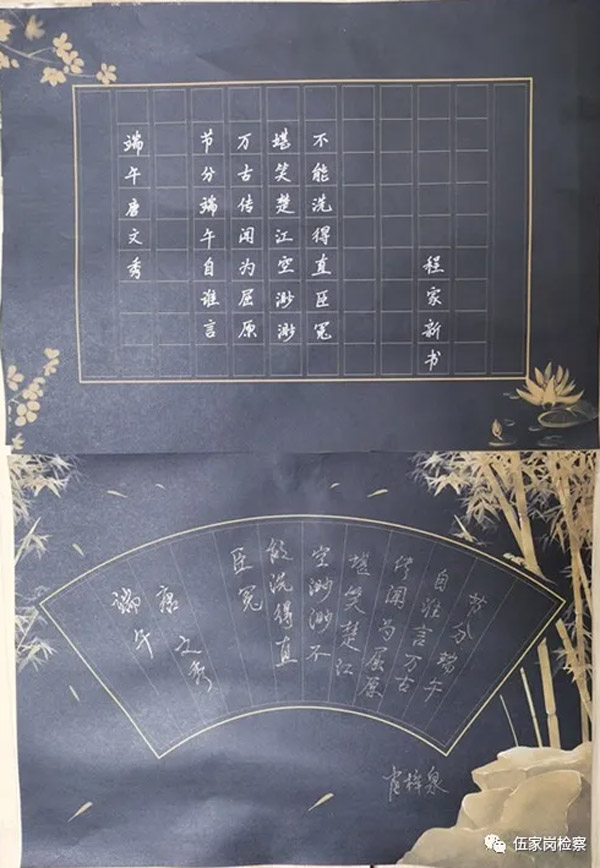 端午唐文秀
节分端午自谁言
万古传闻为屈原
堪笑楚江空渺渺
不能洗得直臣冤
程家新书
节分端午
自谁言万古
传闻为屈原
堪笑楚江
空渺渺不
能洗得直
臣冤
唐文秀
端午
肖梓泉
伍家岗检察